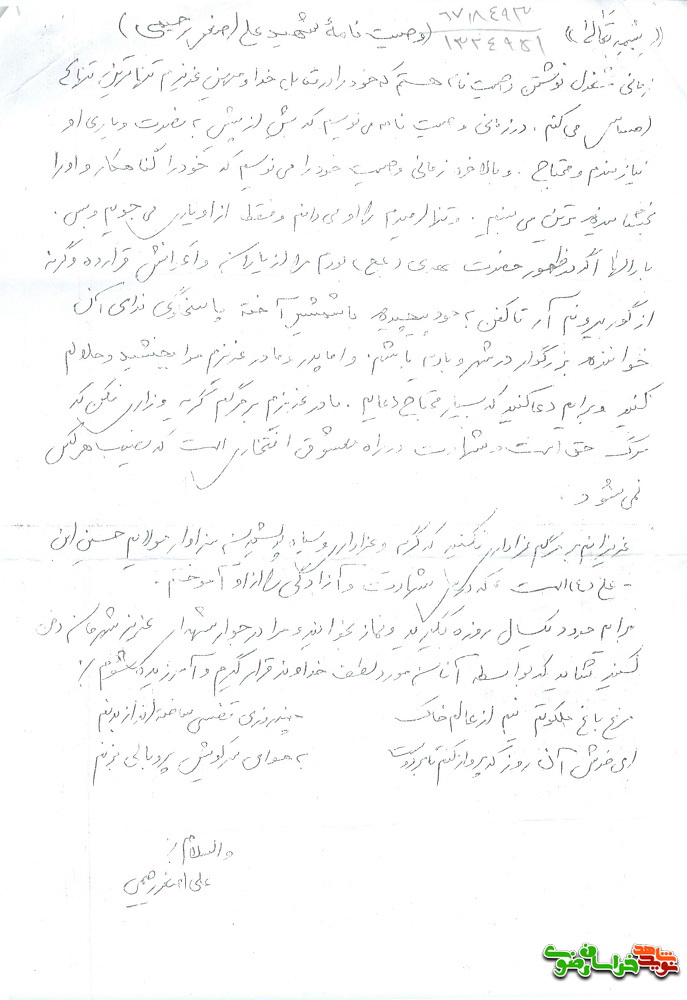 «بسمه تعالی» (وصیت نامهٔ شهید علی اصغر رحیمی) ۶۷۱۸۴۹۳
۱۳۲۴۹۵۱
زمانی مشغول نوشتن وصیت نامه هستم که خود را در مقابل خدا و میهن عزیزم تنهاترین تنهای
احساس می کنم، در زمانی وصیت نامه می نویسم که بیش از پیش به نصرت و یاری او
نیازمندم و محتاج. و بالاخره زمانی وصیت خود را می نویسم که خود را گناهکار و او را
بخشاینده ترین می بینم. و تنها امیدم را او می دانم و فقط از او یاری می جویم و بس.
بارالها اگر در ظهور حضرت مهدی (عج) بودم مرا از یارانش و اعوانش قرار ده وگرنه
از گور بیرونم آر تا کفن به خود پیچیده با شمشیر آخته پاسخگوی ندای آن
خواننده بزرگوار در شهر و بادیه باشم. و اما پدر و مادر عزیزم مرا ببخشید و حلالم
کنید و برایم دعا کنید که بسیار محتاج دعایم. مادر عزیزم بر مرگم گریه و زاری نکن که
مرگ حق است و شهادت در راه معشوق افتخاری است که نصیب هر کس
نمی شود.
عزیزانم بر مرگم عزاداری نکنید که گریه و عزاداری و سیاه پوشیدن سزاوار مولایم حسین ابن
علی (ع) است که درس شهادت و آزادگی را از او آموختم.
برایم حدود یکسال روزه بگیرید و نماز بخوانید و مرا در جوار شهدای عزیز شهرمان دفن
کنید شاید که بواسطه آنان مورد لطف خداوند قرار گیرم و آمرزیده شوم
مرغ باغ ملکوتم نیم از عالم خاک چند روزی قفسی ساخته اند از بدنم
ای خوش آن روز که پرواز کنم تا بر دوست به هوای سر کویش پر و بالی بزنم
والسلام
علی اصغر رحیمی
نوید شاهد خراسان رضوی